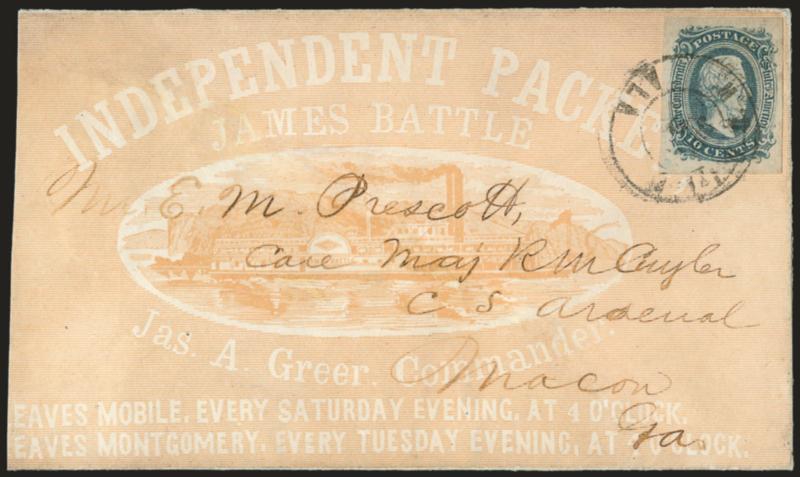 INDEPENDENT PACKE
JAMES BATTLE
POSTAGE
10 CENTS
ALA
Mr. E. M. Prescott,
Care Maj R M Cuyler
C S Arsenal
Macon
Ga
Jas. A. Greer. Commander.
EAVES MOBILE, EVERY SATURDAY EVENING, AT 4 O'CLOCK.
EAVES MONTGOMERY, EVERY TUESDAY EVENING, AT O'CLOCK.